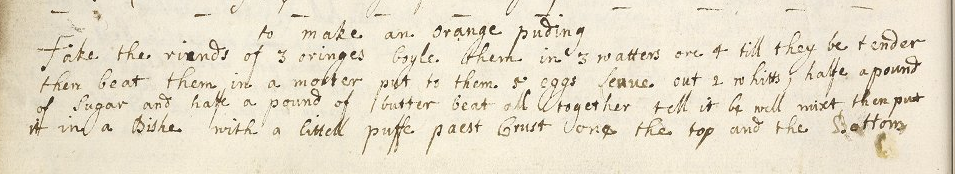 to make an orange puding
Take the riends of 3 oringes boyle them in 3 watters ore 4 till they be tender
then beat them in a morter put to them 5 eggs leave out 2 whitts, halfe a pound
of Sugar and halfe a pound of butter beat all together tell it be well mixt then put
it in a Dishe with a littell puffe paest Crust one the top and the Bottom